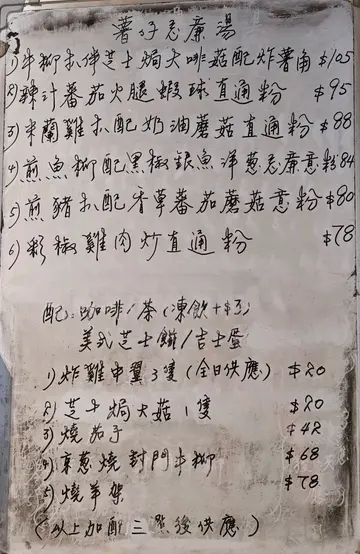 薯仔忌廉湯
1) 牛柳扒伴芝士焗大啡菇配炸薯角 $105
2) 辣汁番茄火腿蝦球直通粉 $95
3) 米蘭雞扒配奶油蘑菇直通粉 $88
4) 煎魚柳配黑椒銀魚洋葱忌廉意粉 84
5) 煎豬扒配香草番茄蘑菇意粉 $80
6) 彩椒雞肉炒直通粉 $78
配: 咖啡/茶 (凍飲+$3)
美式芝士餅/吉士蛋
1) 炸雞中翼3隻 (全日供應) $20
2) 芝士焗大菇1隻 $20
3) 燒茄子 $42
4) 京葱燒封門牛柳 $68
5) 燒羊架 $78
(以上加配三點後供應)